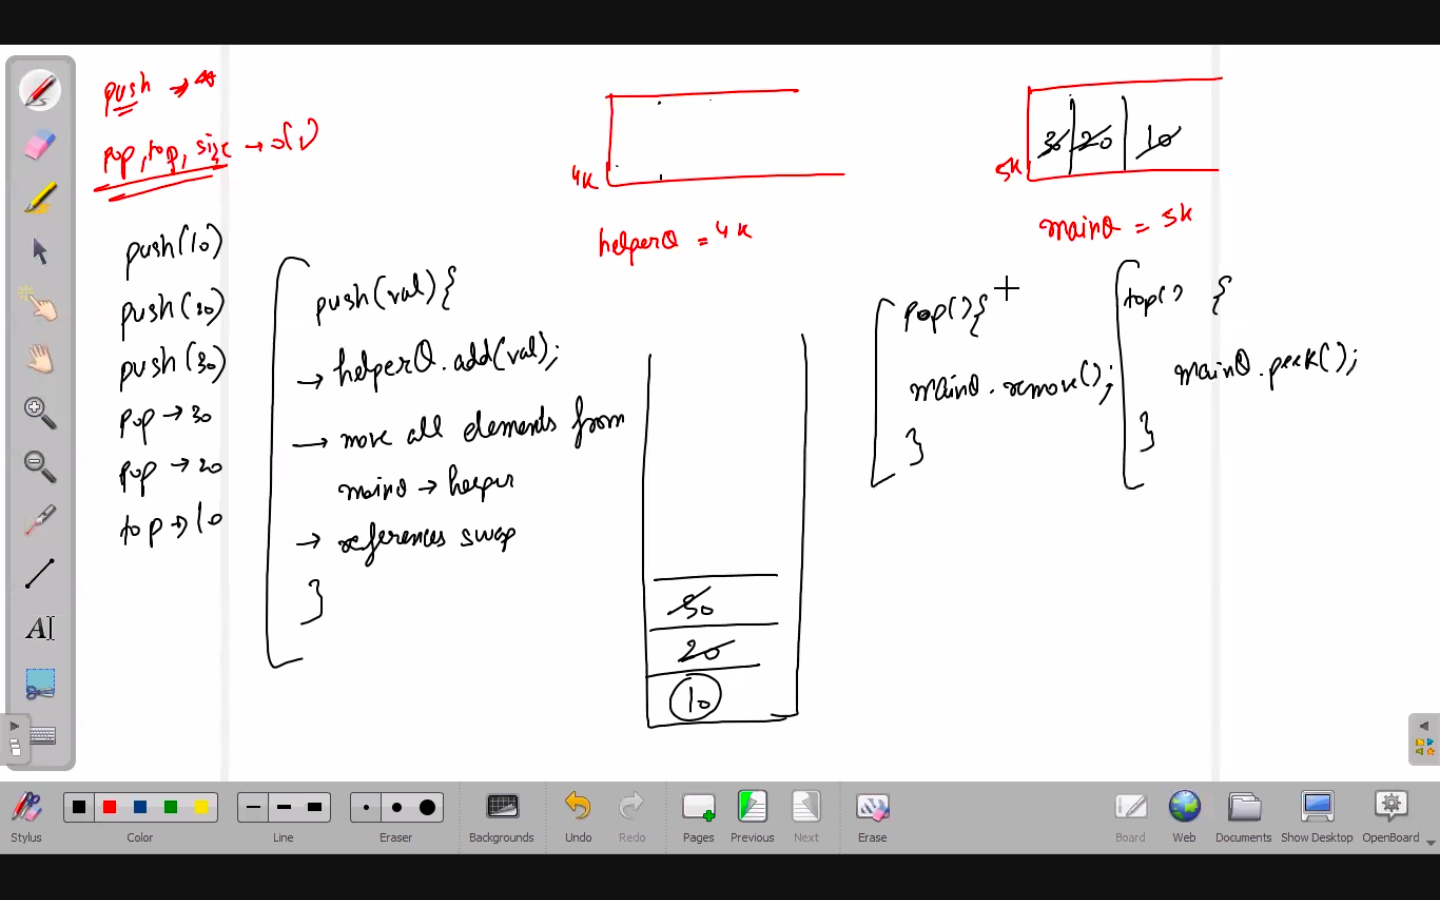 push →
pop, top, size → O(1)
4K
helperQ = 4K
30 20 10
5K
mainQ = 5K
push(10)
push(20)
push(30)
pop → 30
pop → 20
top → 10
push(val){
→ helperQ.add(val);
→ move all elements from
mainQ → helper
→ references swap
}
30
20
10
pop(){
mainQ.remove();
}
top() {
mainQ.peek();
}
A
Stylus
Color
Line
Eraser
Backgrounds
Undo
Redo
Pages
Previous
Next
Erase
Board
Web
Documents
Show Desktop
OpenBoard